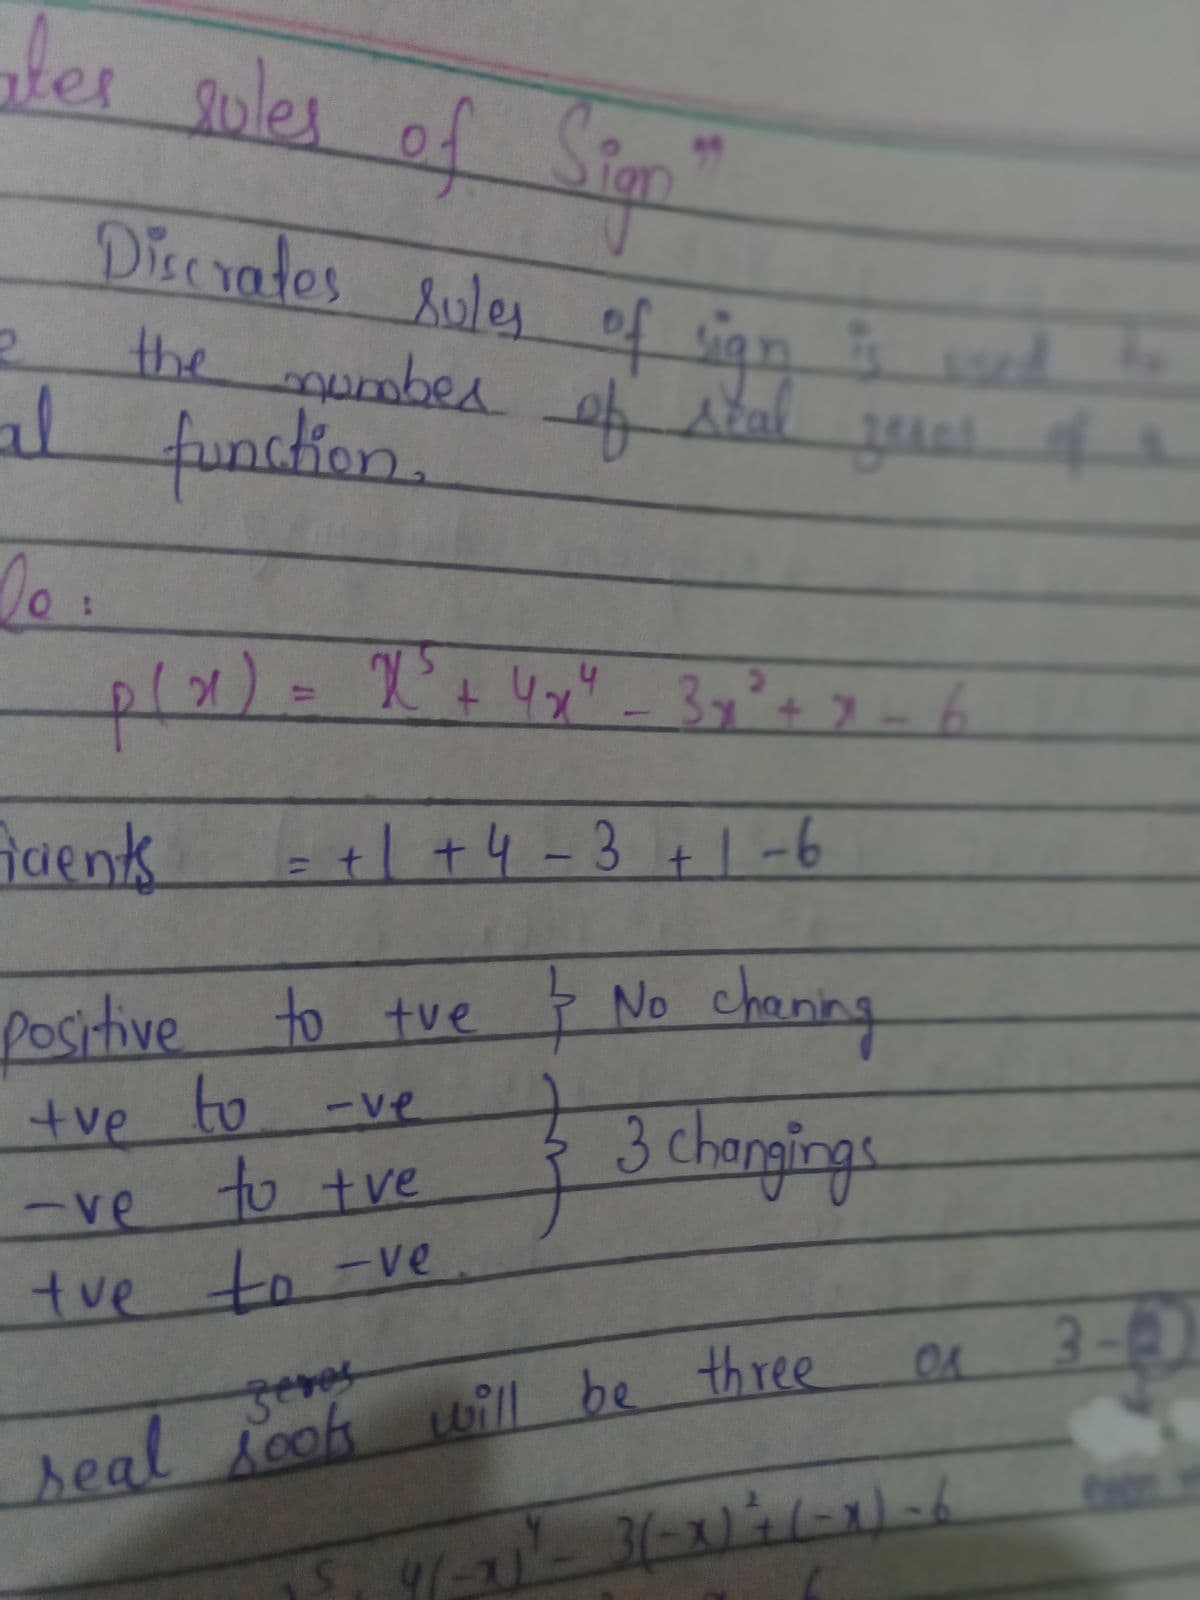 rules of Sign"
Discrates rules of sign is used to
the number of real zeros of a
al function.
le:
p(x) = x⁵ + 4x⁴ - 3x² + x - 6
icients = +1 +4 -3 +1 -6
positive to +ve } No chaning
+ve to -ve
-ve to +ve } 3 changings
+ve to -ve.
zeros
real roots will be three or 3-2
4(-x)⁴ - 3(-x)² + (-x) - 6